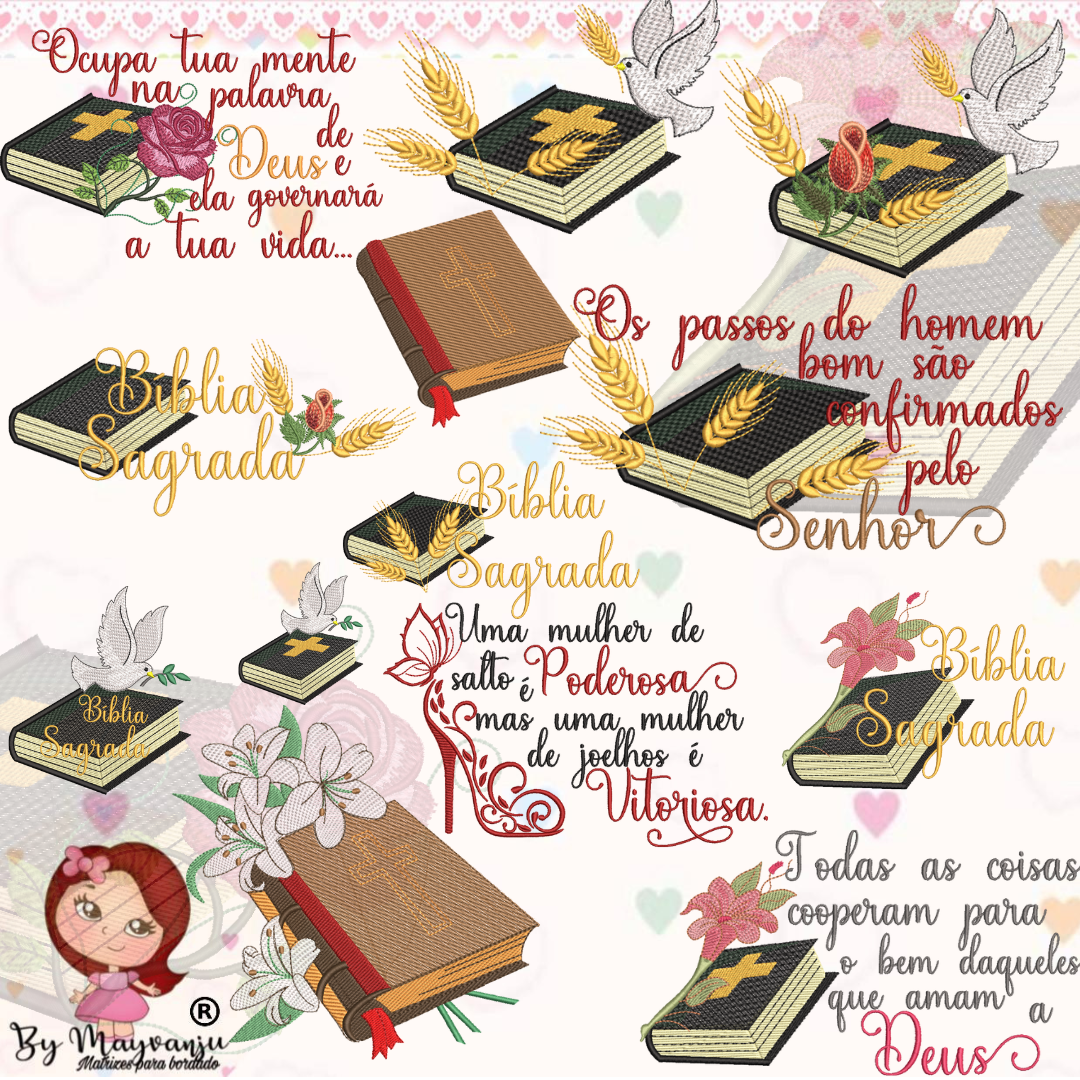 Ocupa tua mente
na palavra
de
Deus e
ela governará
a tua vida...
Os passos do homem
bom são
confirmados
pelo
Senhor
Bíblia
Sagrada
Bíblia
Sagrada
Uma mulher de
salto é Poderosa
mas uma mulher
de joelhos é
Vitoriosa.
Bíblia
Sagrada
Bíblia
Sagrada
Todas as coisas
cooperam para
o bem daqueles
que amam a
Deus
By Mayvanju ®
Matrizes para bordado